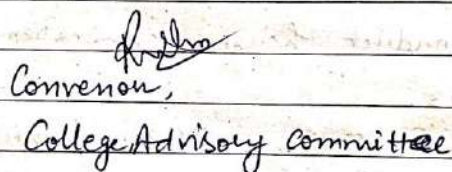 Convenor,
College Advisory Committee